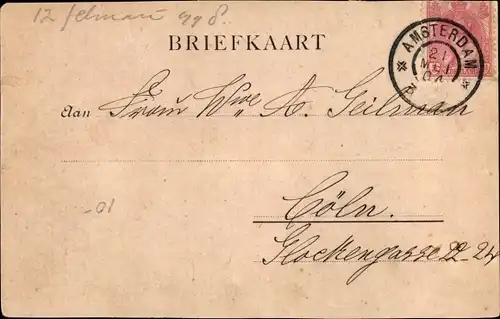 12 februari 998.
BRIEFKAART
AMSTERDAM
21
Aan Frau Wwe A. Geilman
Cöln.
Glockengasse 22-24
-01